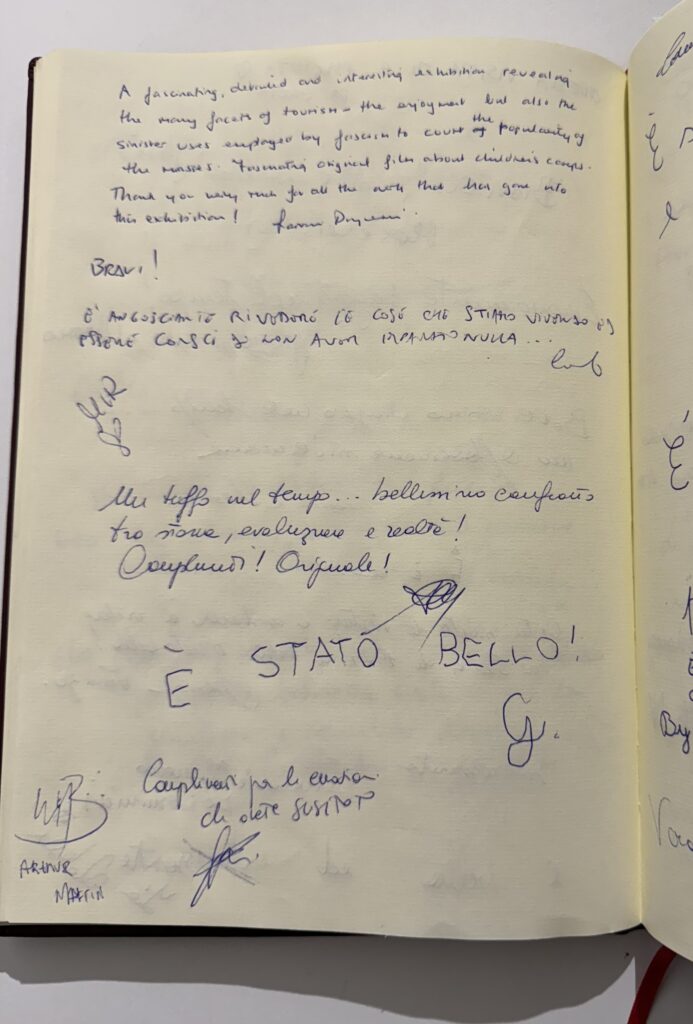 A fascinating, detailed and interesting exhibition revealing
the many facets of tourism - the enjoyment but also the
sinister uses employed by fascism to court the popularity of
the masses. Fascinating original film about children's camps.
Thank you very much for all the work that has gone into
this exhibition!
BRAVI!
E' ANGOSCIANTE RIVEDERE LE COSE CHE STIAMO VIVENDO ED
ESSERE CONSCI DI NON AVER IMPARATO NULLA...
Un tuffo nel tempo... bellissimo confronto
tra storia, evoluzione e realtà!
Complimenti! Originale!
È STATO BELLO!
G.
Complimenti per le emozioni
che avete SUSCITATO
ARTHUR
MARTIN